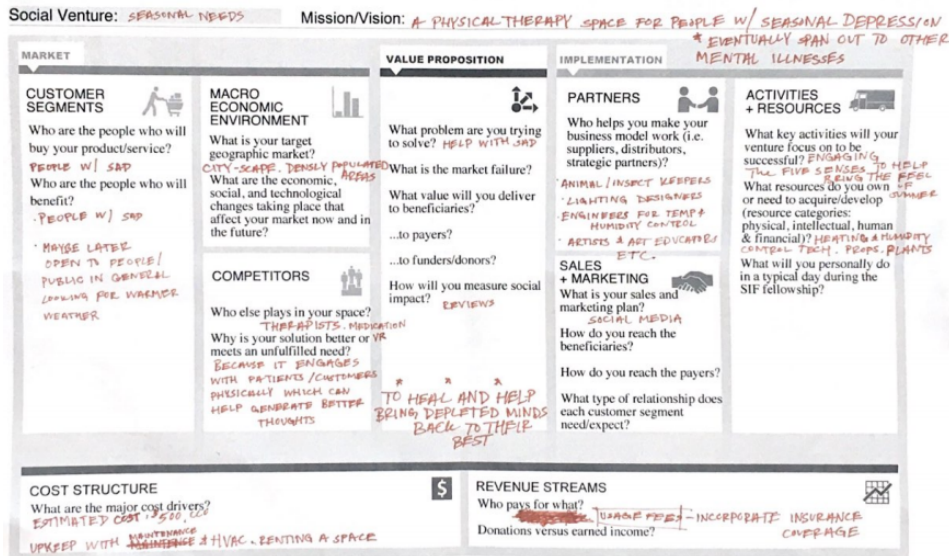 Social Venture: SEASONAL NEEDS
Mission/Vision: A PHYSICAL THERAPY SPACE FOR PEOPLE W/ SEASONAL DEPRESSION
* EVENTUALLY SPAN OUT TO OTHER
MENTAL ILLNESSES
MARKET
CUSTOMER
SEGMENTS
Who are the people who will
buy your product/service?
PEOPLE W/ SAD
Who are the people who will
benefit?
· PEOPLE W/ SAD
· MAYBE LATER
OPEN TO PEOPLE/
PUBLIC IN GENERAL
LOOKING FOR WARMER
WEATHER
MACRO
ECONOMIC
ENVIRONMENT
What is your target
geographic market?
CITY-SCAPE. DENSLY POPULATED
AREAS
What are the economic,
social, and technological
changes taking place that
affect your market now and in
the future?
COMPETITORS
Who else plays in your space?
THERAPISTS. MEDICATION
VR
Why is your solution better or
meets an unfulfilled need?
BECAUSE IT ENGAGES
WITH PATIENTS/CUSTOMERS
PHYSICALLY WHICH CAN
HELP GENERATE BETTER
THOUGHTS
VALUE PROPOSITION
What problem are you trying
to solve? HELP WITH SAD
What is the market failure?
What value will you deliver
to beneficiaries?
...to payers?
...to funders/donors?
How will you measure social
impact?
REVIEWS
* * *
TO HEAL AND HELP
BRING DEPLETED MINDS
BACK TO THEIR
BEST
IMPLEMENTATION
PARTNERS
Who helps you make your
business model work (i.e.
suppliers, distributors,
strategic partners)?
· ANIMAL/INSECT KEEPERS
· LIGHTING DESIGNERS
· ENGINEERS FOR TEMP &
HUMIDITY CONTROL
· ARTISTS & ART EDUCATORS
ETC.
SALES
+ MARKETING
What is your sales and
marketing plan?
SOCIAL MEDIA
How do you reach the
beneficiaries?
How do you reach the payers?
What type of relationship does
each customer segment
need/expect?
ACTIVITIES
+ RESOURCES
What key activities will your
venture focus on to be
successful? ENGAGING
THE FIVE SENSES TO HELP
BRING THE FEEL
OF
SUMMER
What resources do you own
or need to acquire/develop
(resource categories:
physical, intellectual, human
& financial)? HEATING & HUMIDITY
CONTROL TECH. PROPS. PLANTS
What will you personally do
in a typical day during the
SIF fellowship?
COST STRUCTURE
$
What are the major cost drivers?
ESTIMATED COST: $500,000
MAINTENANCE
UPKEEP WITH & HVAC. RENTING A SPACE
REVENUE STREAMS
Who pays for what?
USAGE FEES - INCORPORATE INSURANCE
COVERAGE
Donations versus earned income?